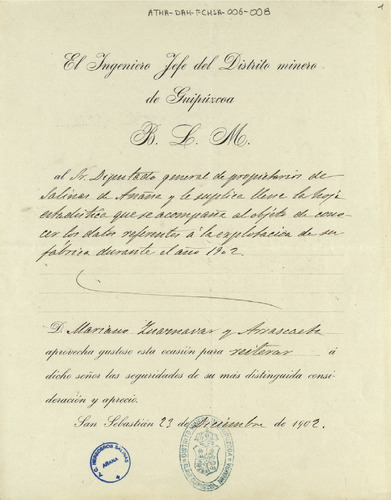 ATHA-DAH-FCHSA-006-008
1
El Ingeniero Jefe del Distrito minero
de Guipúzcoa
B. L. M.
al Sr. Diputado general de propietarios de
Salinas de Añana y le suplica llene la hoja
estadística que se acompaña al objeto de cono-
cer los datos referentes á la explotacion de su
fábrica durante el año 1902
D. Mariano Zuaznavar y Arrascaeta
aprovecha gustoso esta ocasión para reiterar á
dicho señor las seguridades de su más distinguida consi-
deración y aprecio.
San Sebastián 23 de Diciembre de 1902.
SALINAS
AÑANA